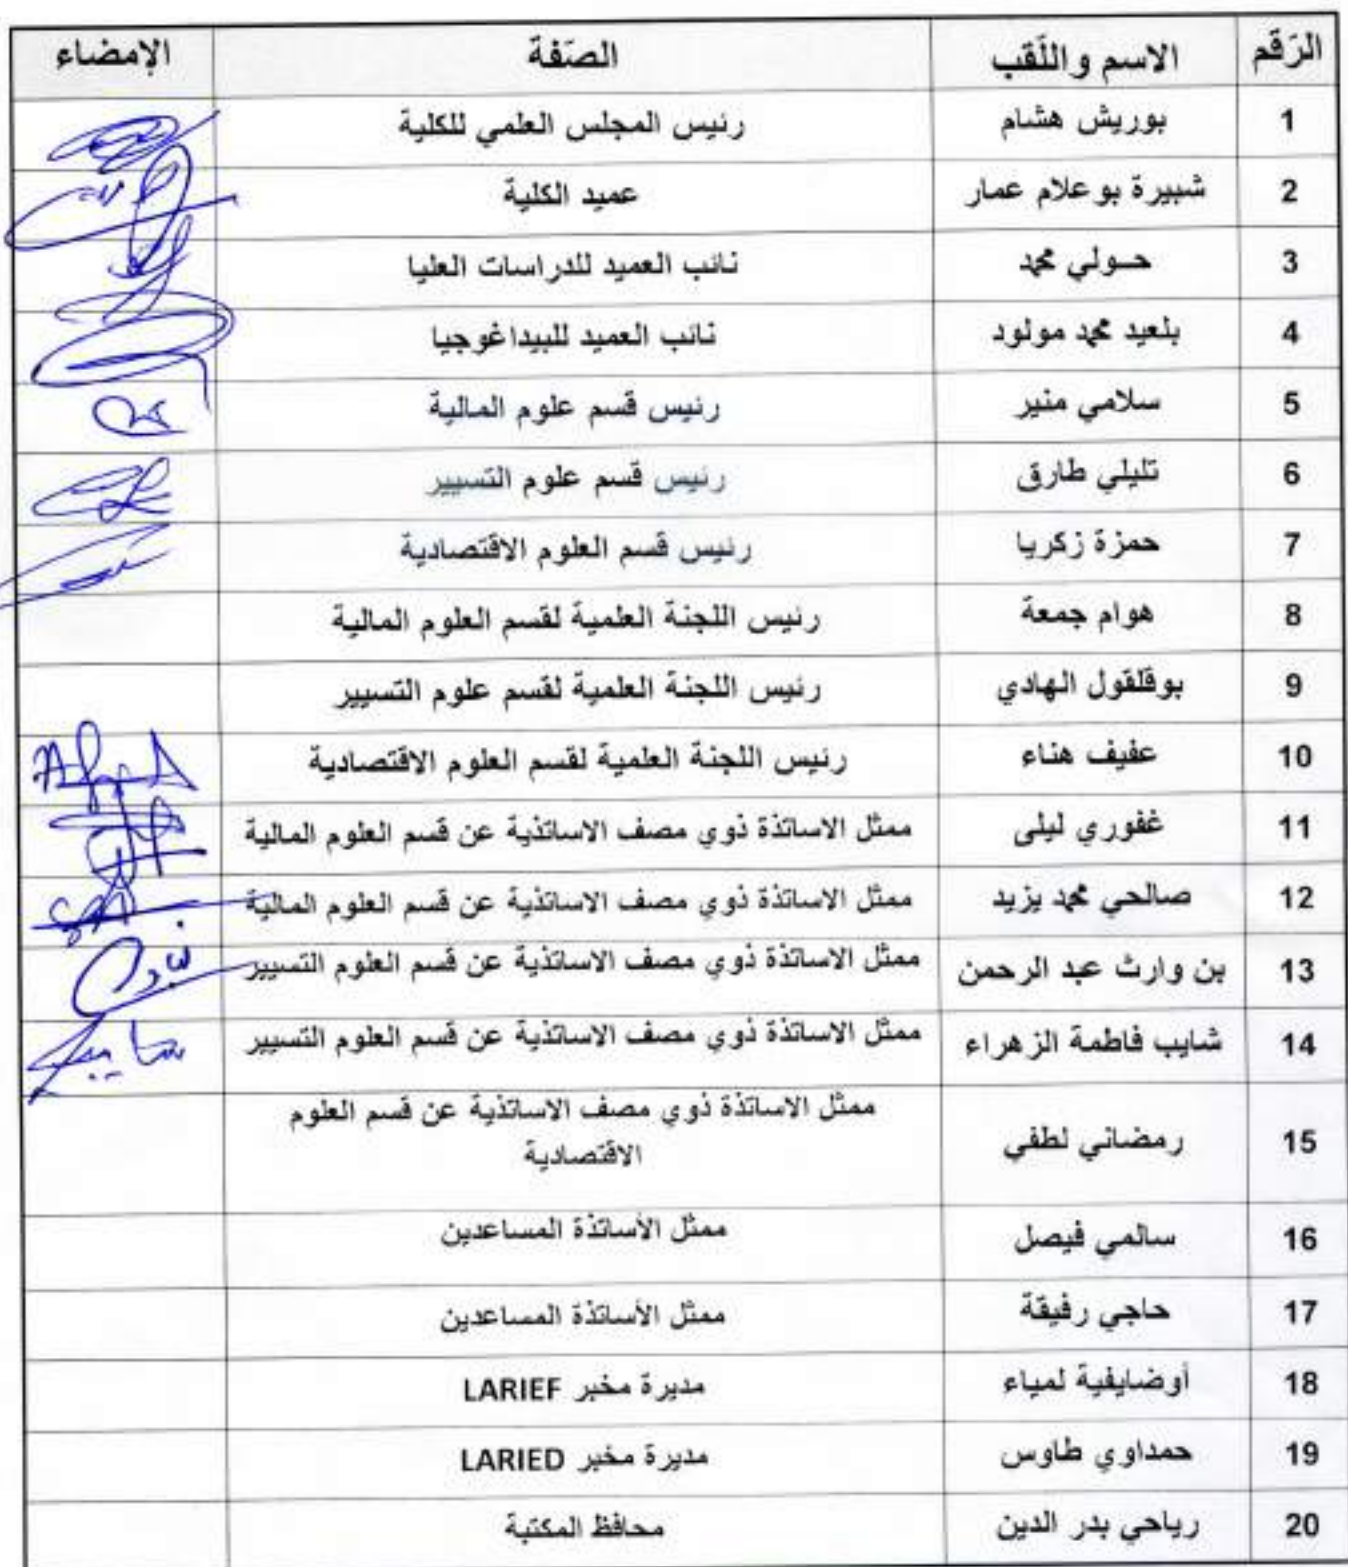 الرّقم الاسم واللّقب الصّفة الإمضاء
1 بوريش هشام رئيس المجلس العلمي للكلية
2 شبيرة بوعلام عمار عميد الكلية
3 حولي محمد نائب العميد للدراسات العليا
4 بلعيد محمد مولود نائب العميد للبيداغوجيا
5 سلامي منير رئيس قسم علوم المالية
6 تليلي طارق رئيس قسم علوم التسيير
7 حمزة زكريا رئيس قسم العلوم الاقتصادية
8 هوام جمعة رئيس اللجنة العلمية لقسم العلوم المالية
9 بوقلقول الهادي رئيس اللجنة العلمية لقسم علوم التسيير
10 عفيف هناء رئيس اللجنة العلمية لقسم العلوم الاقتصادية
11 غفوري ليلى ممثل الاساتذة ذوي مصف الاساتذية عن قسم العلوم المالية
12 صالحي محمد يزيد ممثل الاساتذة ذوي مصف الاساتذية عن قسم العلوم المالية
13 بن وارث عبد الرحمن ممثل الاساتذة ذوي مصف الاساتذية عن قسم العلوم التسيير
14 شايب فاطمة الزهراء ممثل الاساتذة ذوي مصف الاساتذية عن قسم العلوم التسيير
15 رمضاني لطفي ممثل الاساتذة ذوي مصف الاساتذية عن قسم العلوم
الاقتصادية
16 سالمي فيصل ممثل الأساتذة المساعدين
17 حاجي رفيقة ممثل الأساتذة المساعدين
18 أوضايفية لمياء مديرة مخبر LARIEF
19 حمداوي طاوس مديرة مخبر LARIED
20 رياحي بدر الدين محافظ المكتبة